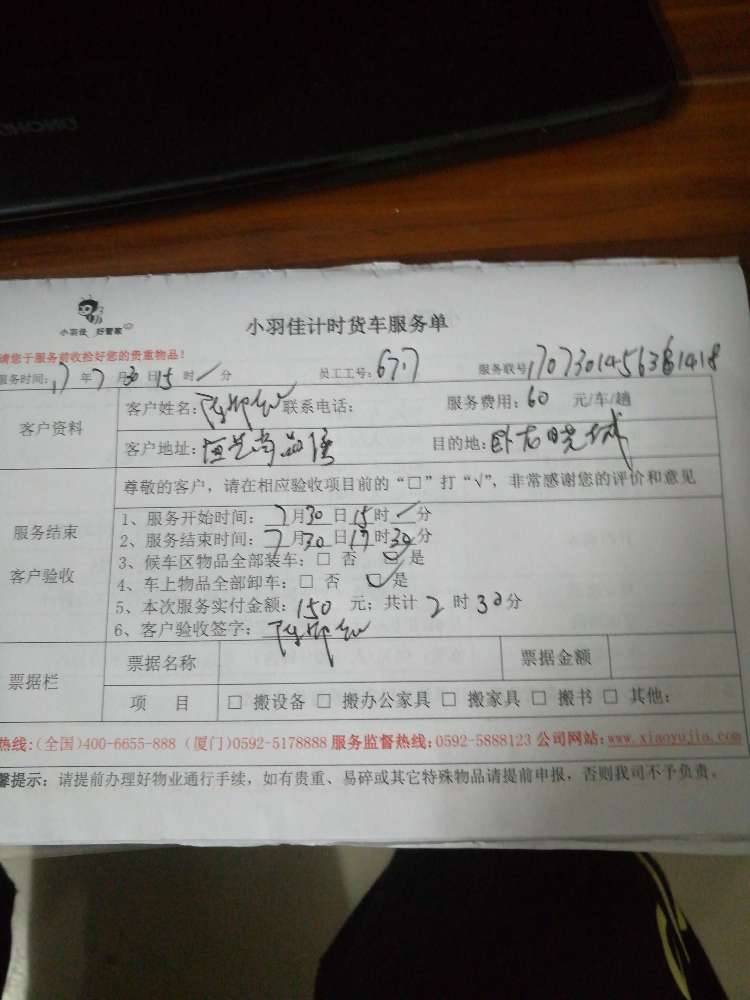 小羽佳 好管家
小羽佳计时货车服务单
请您于服务前收拾好您的贵重物品!
服务时间:17年7月30日15时/分 员工工号:677 服务联号
客户资料
客户姓名: 联系电话: 服务费用:60 元/车/趟
客户地址: 目的地:
尊敬的客户,请在相应验收项目前的“□”打“√”,非常感谢您的评价和意见
服务结束
客户验收
1、服务开始时间:7月30日15时/分
2、服务结束时间:7月30日17时30分
3、候车区物品全部装车:□ 否 ☑是
4、车上物品全部卸车:□ 否 ☑是
5、本次服务实付金额:150 元;共计 2 时 30分
6、客户验收签字:
票据栏
票据名称 票据金额
项 目 □ 搬设备 □ 搬办公家具 □ 搬家具 □ 搬书 □ 其他:
热线:(全国)400-6655-888(厦门)0592-5178888 服务监督热线:0592-5888123 公司网站:www.xiaoyujia.com
馨提示:请提前办理好物业通行手续,如有贵重、易碎或其它特殊物品请提前申报,否则我司不予负责。